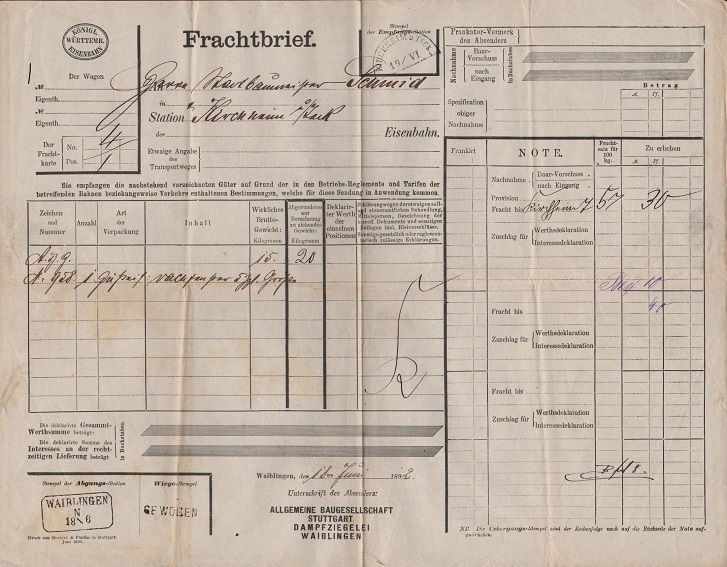 KÖNIGL.
WÜRTTEMB.
EISENBAHN
Frachtbrief.
Stempel
der Empfangs-Station
KIRCHHEIM U. TECK
19/VI
Der Wagen
№
Eigenth.
№
Eigenth.
Der Fracht-
karte
No. 4
Pos. 1
Herrn Stadtbaumeister Schmid
in
Station Kirchheim u/Teck
der
Eisenbahn.
Etwaige Angabe
des
Transportweges
Sie empfangen die nachstehend verzeichneten Güter auf Grund der in den Betriebs-Reglements und Tarifen der
betreffenden Bahnen beziehungsweise Verkehre enthaltenen Bestimmungen, welche für diese Sendung in Anwendung kommen.
Zeichen
und
Nummer
Anzahl
Art
der
Verpackung
Inhalt
Wirkliches
Brutto-
Gewicht:
Kilogramm
Abgerundetes
zur
Berechnung
zu ziehendes
Gewicht:
Kilogramm
Deklarir-
ter Werth
der
einzelnen
Positionen
A. Z. G. 15. 20
N. 958. 1
Die deklarirte Gesammt-
Werthsumme beträgt:
Die deklarirte Summe des
Interesses an der recht-
zeitigen Lieferung beträgt
in Buchstaben
Stempel der Abgangs-Station
WAIBLINGEN
N
18 6
Wiege-Stempel
GEWOGEN
Waiblingen, den 18. Juni 1892
Unterschrift des Absenders:
ALLGEMEINE BAUGESELLSCHAFT
STUTTGART
DAMPFZIEGELEI
WAIBLINGEN
Frankatur-Vermerk
des Absenders
Nachnahme
Baar-
Vorschuss
nach
Eingang
in Buchstaben
Betrag
M. Pf.
Spezifikation
obiger
Nachnahme
Frankirt
NOTE.
Fracht-
satz für
100
kg.
Zu erheben
M. Pf.
M. Pf.
Nachnahme
Baar-Vorschuss
nach Eingang
Provision
Fracht bis Kirchheim T 57 30
Zuschlag für
Werthsdeklaration
Interessedeklaration
10
40
Fracht bis
Zuschlag für
Werthsdeklaration
Interessedeklaration
Fracht bis
Zuschlag für
Werthsdeklaration
Interessedeklaration
NB. Die Uebergangs-Stempel sind der Reihenfolge nach auf die Rückseite der Note auf-
zudrücken.